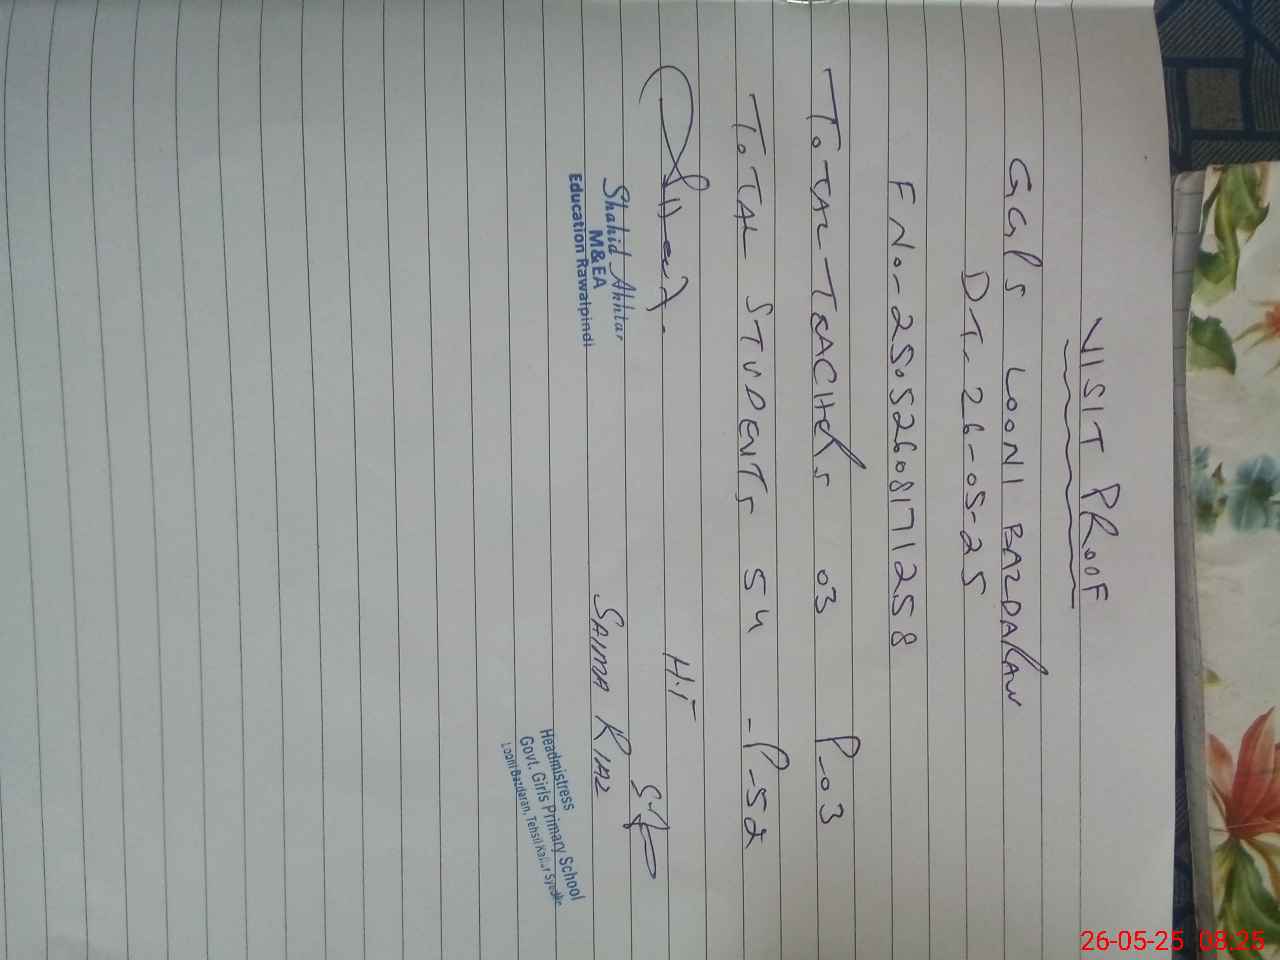 VISIT PROOF
GGPS LOONI BAZDARAN
DT. 26-05-25
F No- 25052608171258
TOTAL TEACHERS 03 P-03
TOTAL STUDENTS 54 - P-52
H.T
Shahid Akhtar
M&EA
Education Rawalpindi
SAIMA RIAZ
Headmistress
Govt. Girls Primary School
Looni Bazdaran, Tehsil Kallar Syedan
26-05-25 08:25